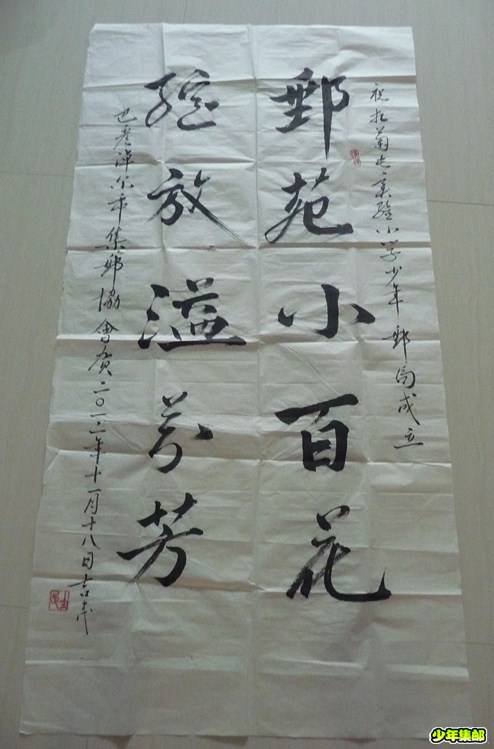 祝
小学少年郵局成立
郵苑小百花
綻放溢芬芳
巴彦淖尔市集郵協會賀二〇一二年十一月十八日
少年集邮